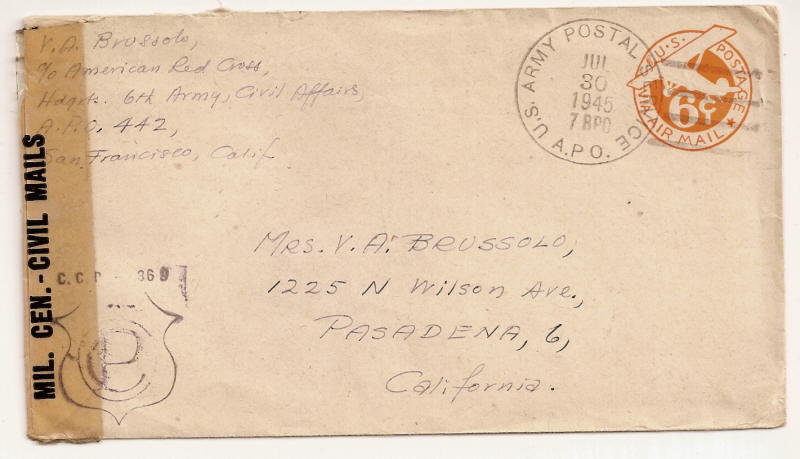 V. A. Brussolo,
c/o American Red Cross,
Hdqrts. 6th Army, Civil Affairs,
A.P.O. 442,
San Francisco, Calif
U.S. ARMY POSTAL SERVICE
JUL
30
1945
A.P.O.
U.S. POSTAGE
6¢
VIA AIR MAIL
MIL. CEN. - CIVIL MAILS
Mrs. V. A. BRUSSOLO,
1225 N Wilson Ave.,
PASADENA, 6,
California.
C.C.D. - 369